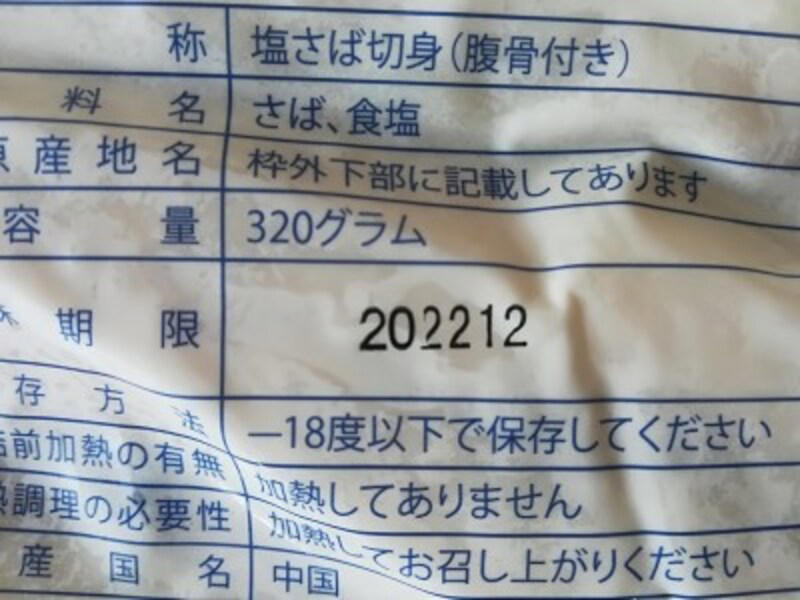 称 塩さば切身（腹骨付き）
料名 さば、食塩
産地名 枠外下部に記載してあります
容量 320グラム
期限 202212
存方法 −18度以下で保存してください
前加熱の有無 加熱してありません
調理の必要性 加熱してお召し上がりください
産国名 中国